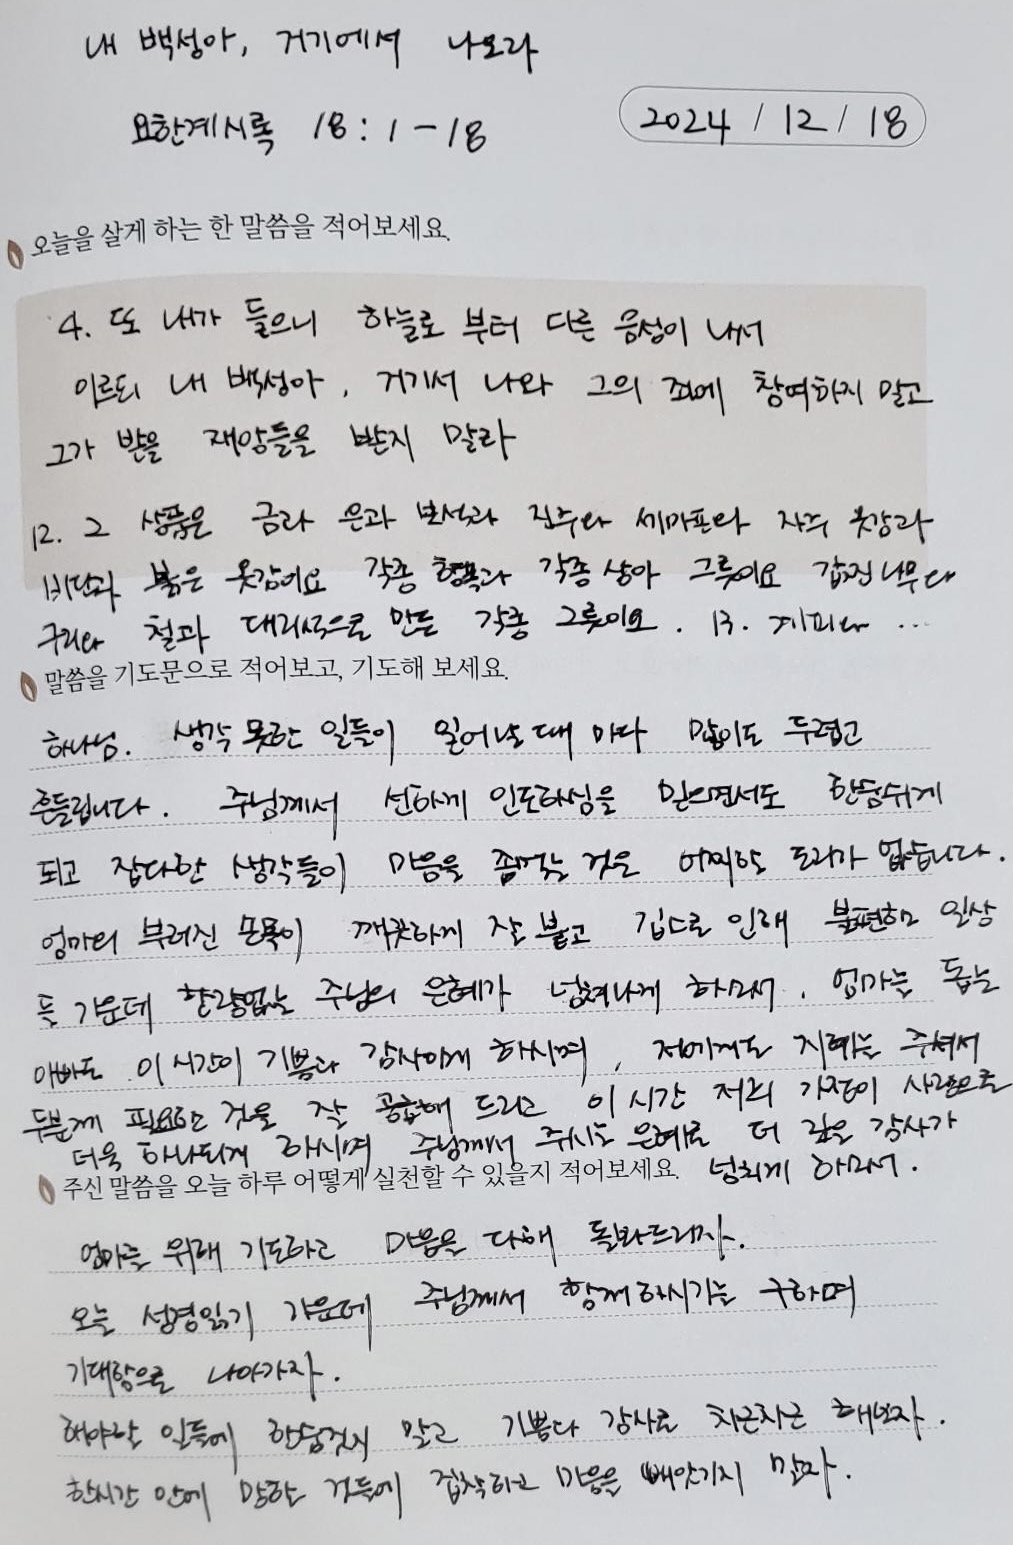 내 백성아, 거기에서 나오라
요한계시록 18:1-18
2024/12/18
오늘을 살게 하는 한 말씀을 적어보세요.
4. 또 내가 들으니 하늘로 부터 다른 음성이 나서
이르되 내 백성아, 거기서 나와 그의 죄에 참여하지 말고
그가 받을 재앙들을 받지 말라
12. 그 상품은 금과 은과 보석과 진주와 세마포와 자주 옷감과
비단과 붉은 옷감이요 각종 향목과 각종 상아 그릇이요 값진 나무와
구리와 철과 대리석으로 만든 각종 그릇이요. 13. 계피와 ...
말씀을 기도문으로 적어보고, 기도해 보세요.
하나님. 생각 못한 일들이 일어날 때 마다 많이도 두렵고
흔들립니다. 주님께서 선하게 인도하심을 믿으면서도 한숨쉬게
되고 잡다한 생각들이 마음을 좀먹는 것은 어찌할 도리가 없습니다.
엄마의 부러진 손목이 깨끗하게 잘 붙고 깁스로 인해 불편한 일상
들 가운데 한량없는 주님의 은혜가 넘쳐나게 하소서. 엄마를 돕는
아빠도 이 시간이 기쁨과 감사이게 하시며, 저에게도 지혜를 주셔서
두분께 필요한 것을 잘 공급해 드리고 이 시간 저희 가정이 사랑으로
더욱 하나되게 하시며 주님께서 주시는 은혜로 더 깊은 감사가
넘치게 하소서.
주신 말씀을 오늘 하루 어떻게 실천할 수 있을지 적어보세요.
엄마를 위해 기도하고 마음을 다해 돌봐드리자.
오늘 성경읽기 가운데 주님께서 함께하시기를 구하며
기대함으로 나아가자.
해야할 일들에 한숨짓지 말고 기쁨과 감사로 차근차근 해보자.
한시간 안에 망할 것들에 집착하고 마음을 빼앗기지 말자.